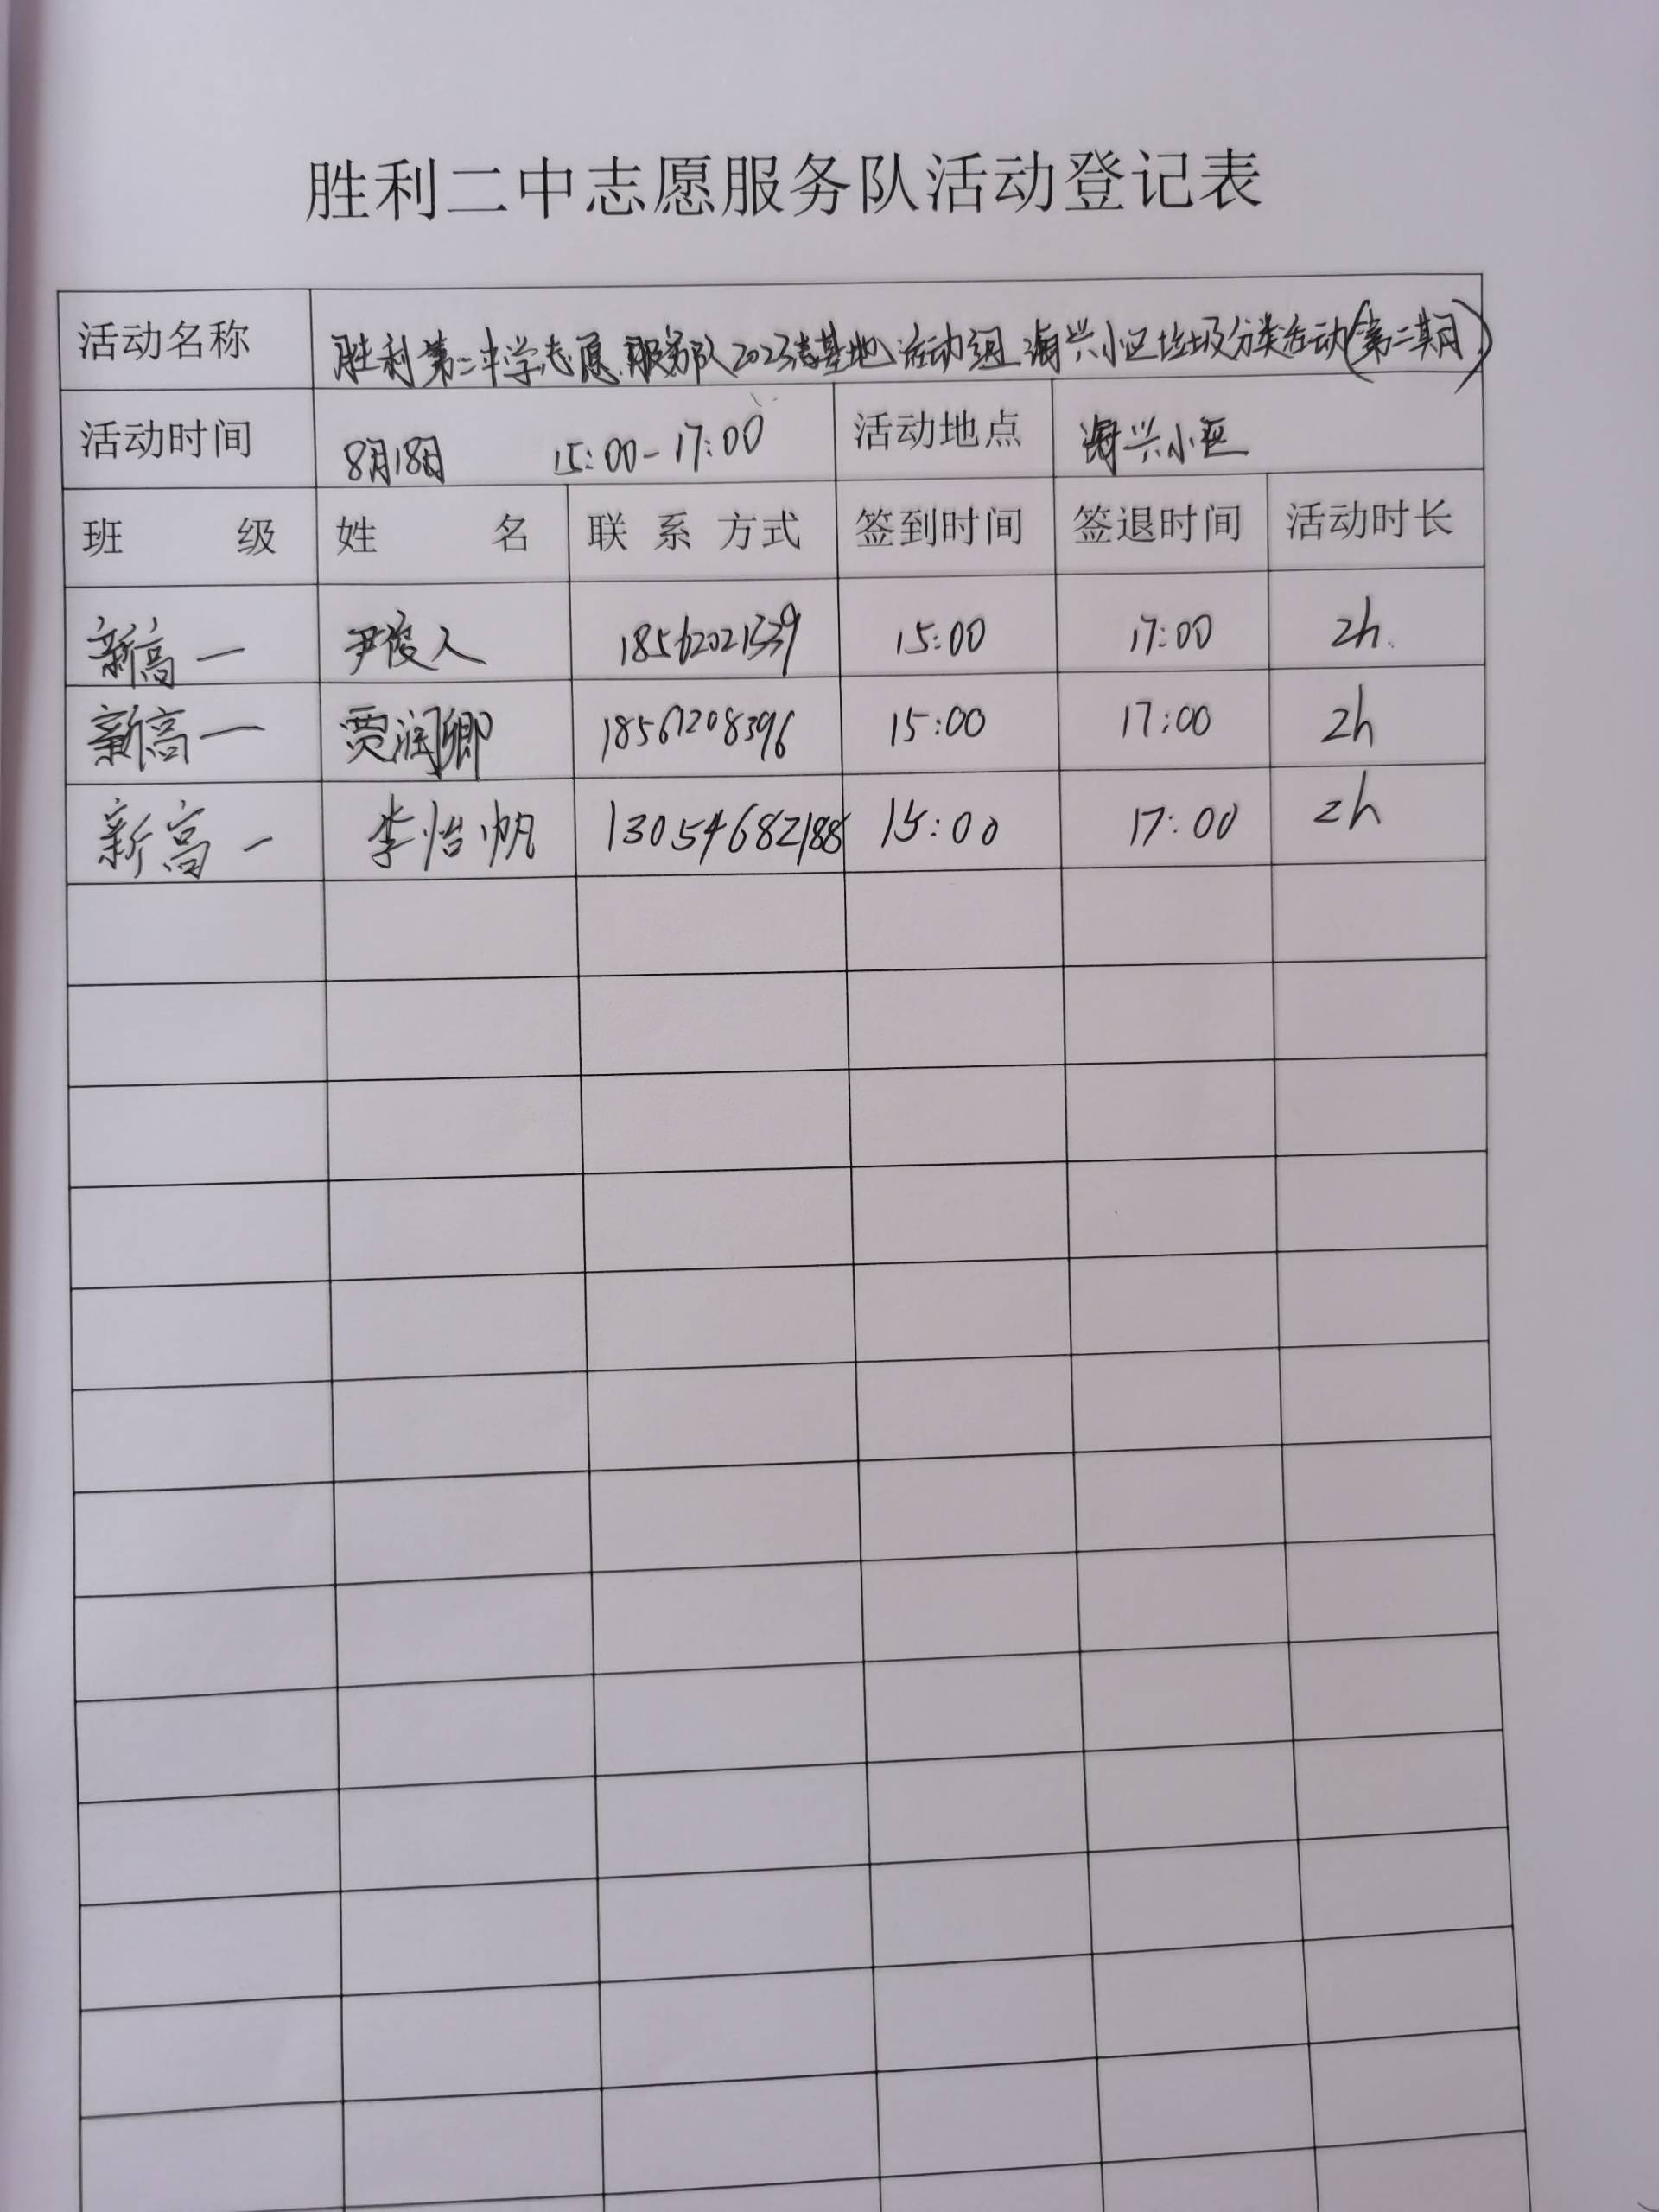 胜利二中志愿服务队活动登记表
活动名称 胜利第二中学志愿服务队2023基地活动组 海兴小区垃圾分类活动(第二期)
活动时间 8月18日 15:00-17:00 活动地点 海兴小区
班 级 姓 名 联 系 方式 签到时间 签退时间 活动时长
新高一 尹俊人 15:00 17:00 2h
新高一 贾润卿 18561208396 15:00 17:00 2h
新高一 李怡帆 13054682188 15:00 17:00 2h